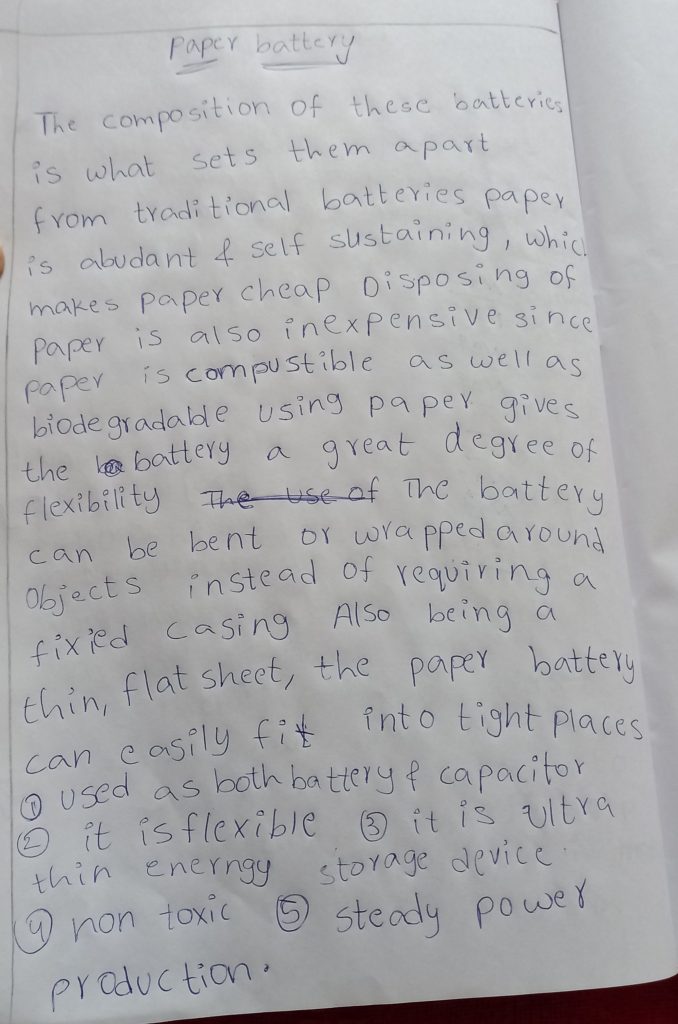 Paper battery
The composition of these batteries
is what sets them apart
from traditional batteries paper
is abudant & self sustaining, which
makes paper cheap Disposing of
paper is also inexpensive since
paper is compustible as well as
biodegradable using paper gives
the battery a great degree of
flexibility The use of The battery
can be bent or wrapped around
Objects instead of requiring a
fixied casing Also being a
thin, flat sheet, the paper battery
can easily fit into tight places
① used as both battery & capacitor
② it is flexible ③ it is ultra
thin enerngy storage device.
④ non toxic ⑤ steady power
production.